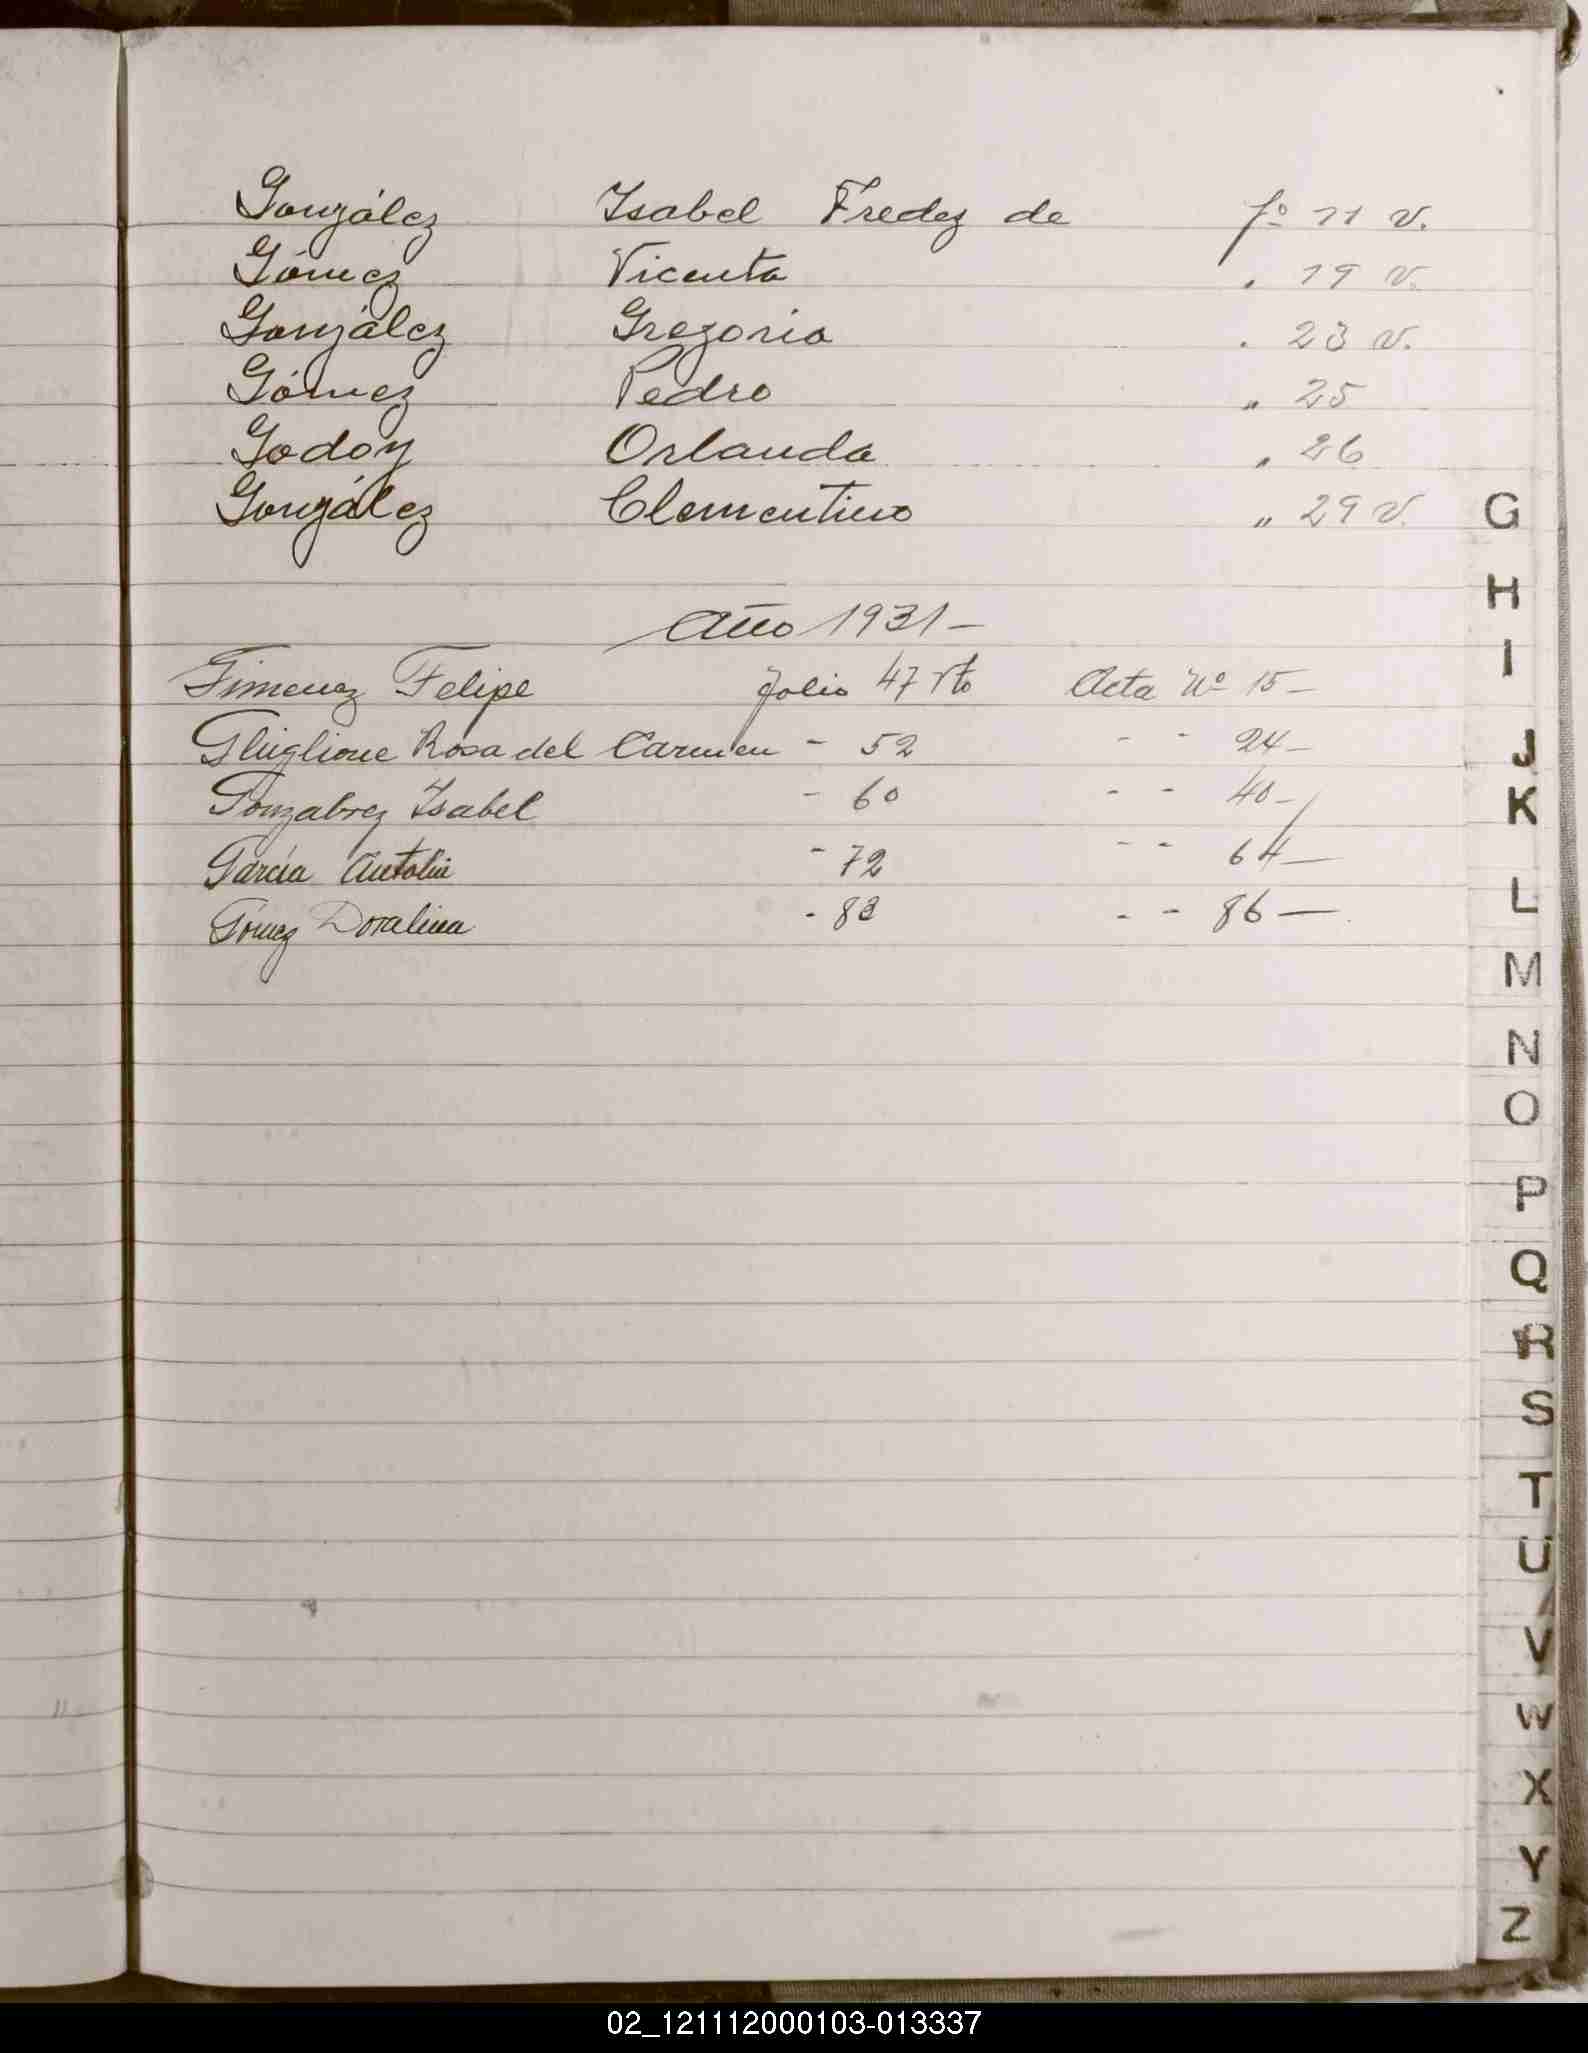 González Isabel Fredez de fº 11 v.
Gómez Vicenta . 19 v.
González Gregoria . 23 v.
Gómez Pedro " 25
Godoy Orlanda " 26
González Clementino " 29 v.
G
H
Año 1931-
I
Gimenez Felipe folio 47 vto Acta Nº 15-
Ghiglione Rosa del Carmen - 52 - - 24-
J
Gonzalvez Isabel - 60 - - 40-
K
García Antolin - 72 - - 64-
L
Gómez Doralina - 83 - - 86-
M
N
O
P
Q
R
S
T
U
V
W
X
Y
Z
02_121112000103-013337